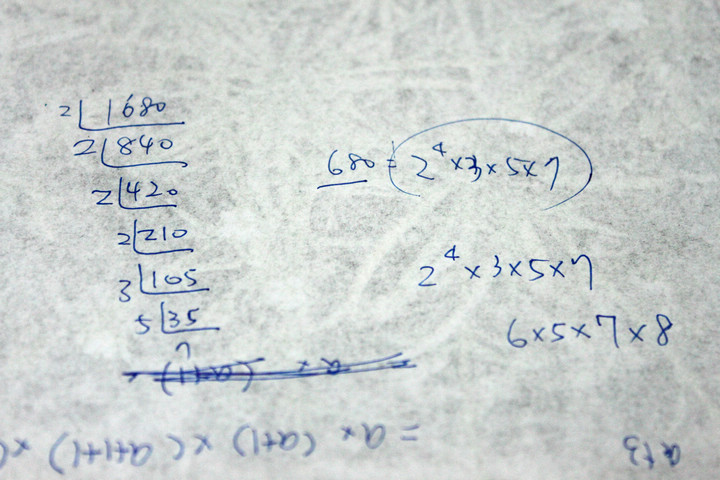 2 1680
2 840
2 420
2 210
3 105
5 35
7
680 = 2⁴×3×5×7
2⁴×3×5×7
6×5×7×8
= a×(a+1)×(a+1+1)×(
a+3